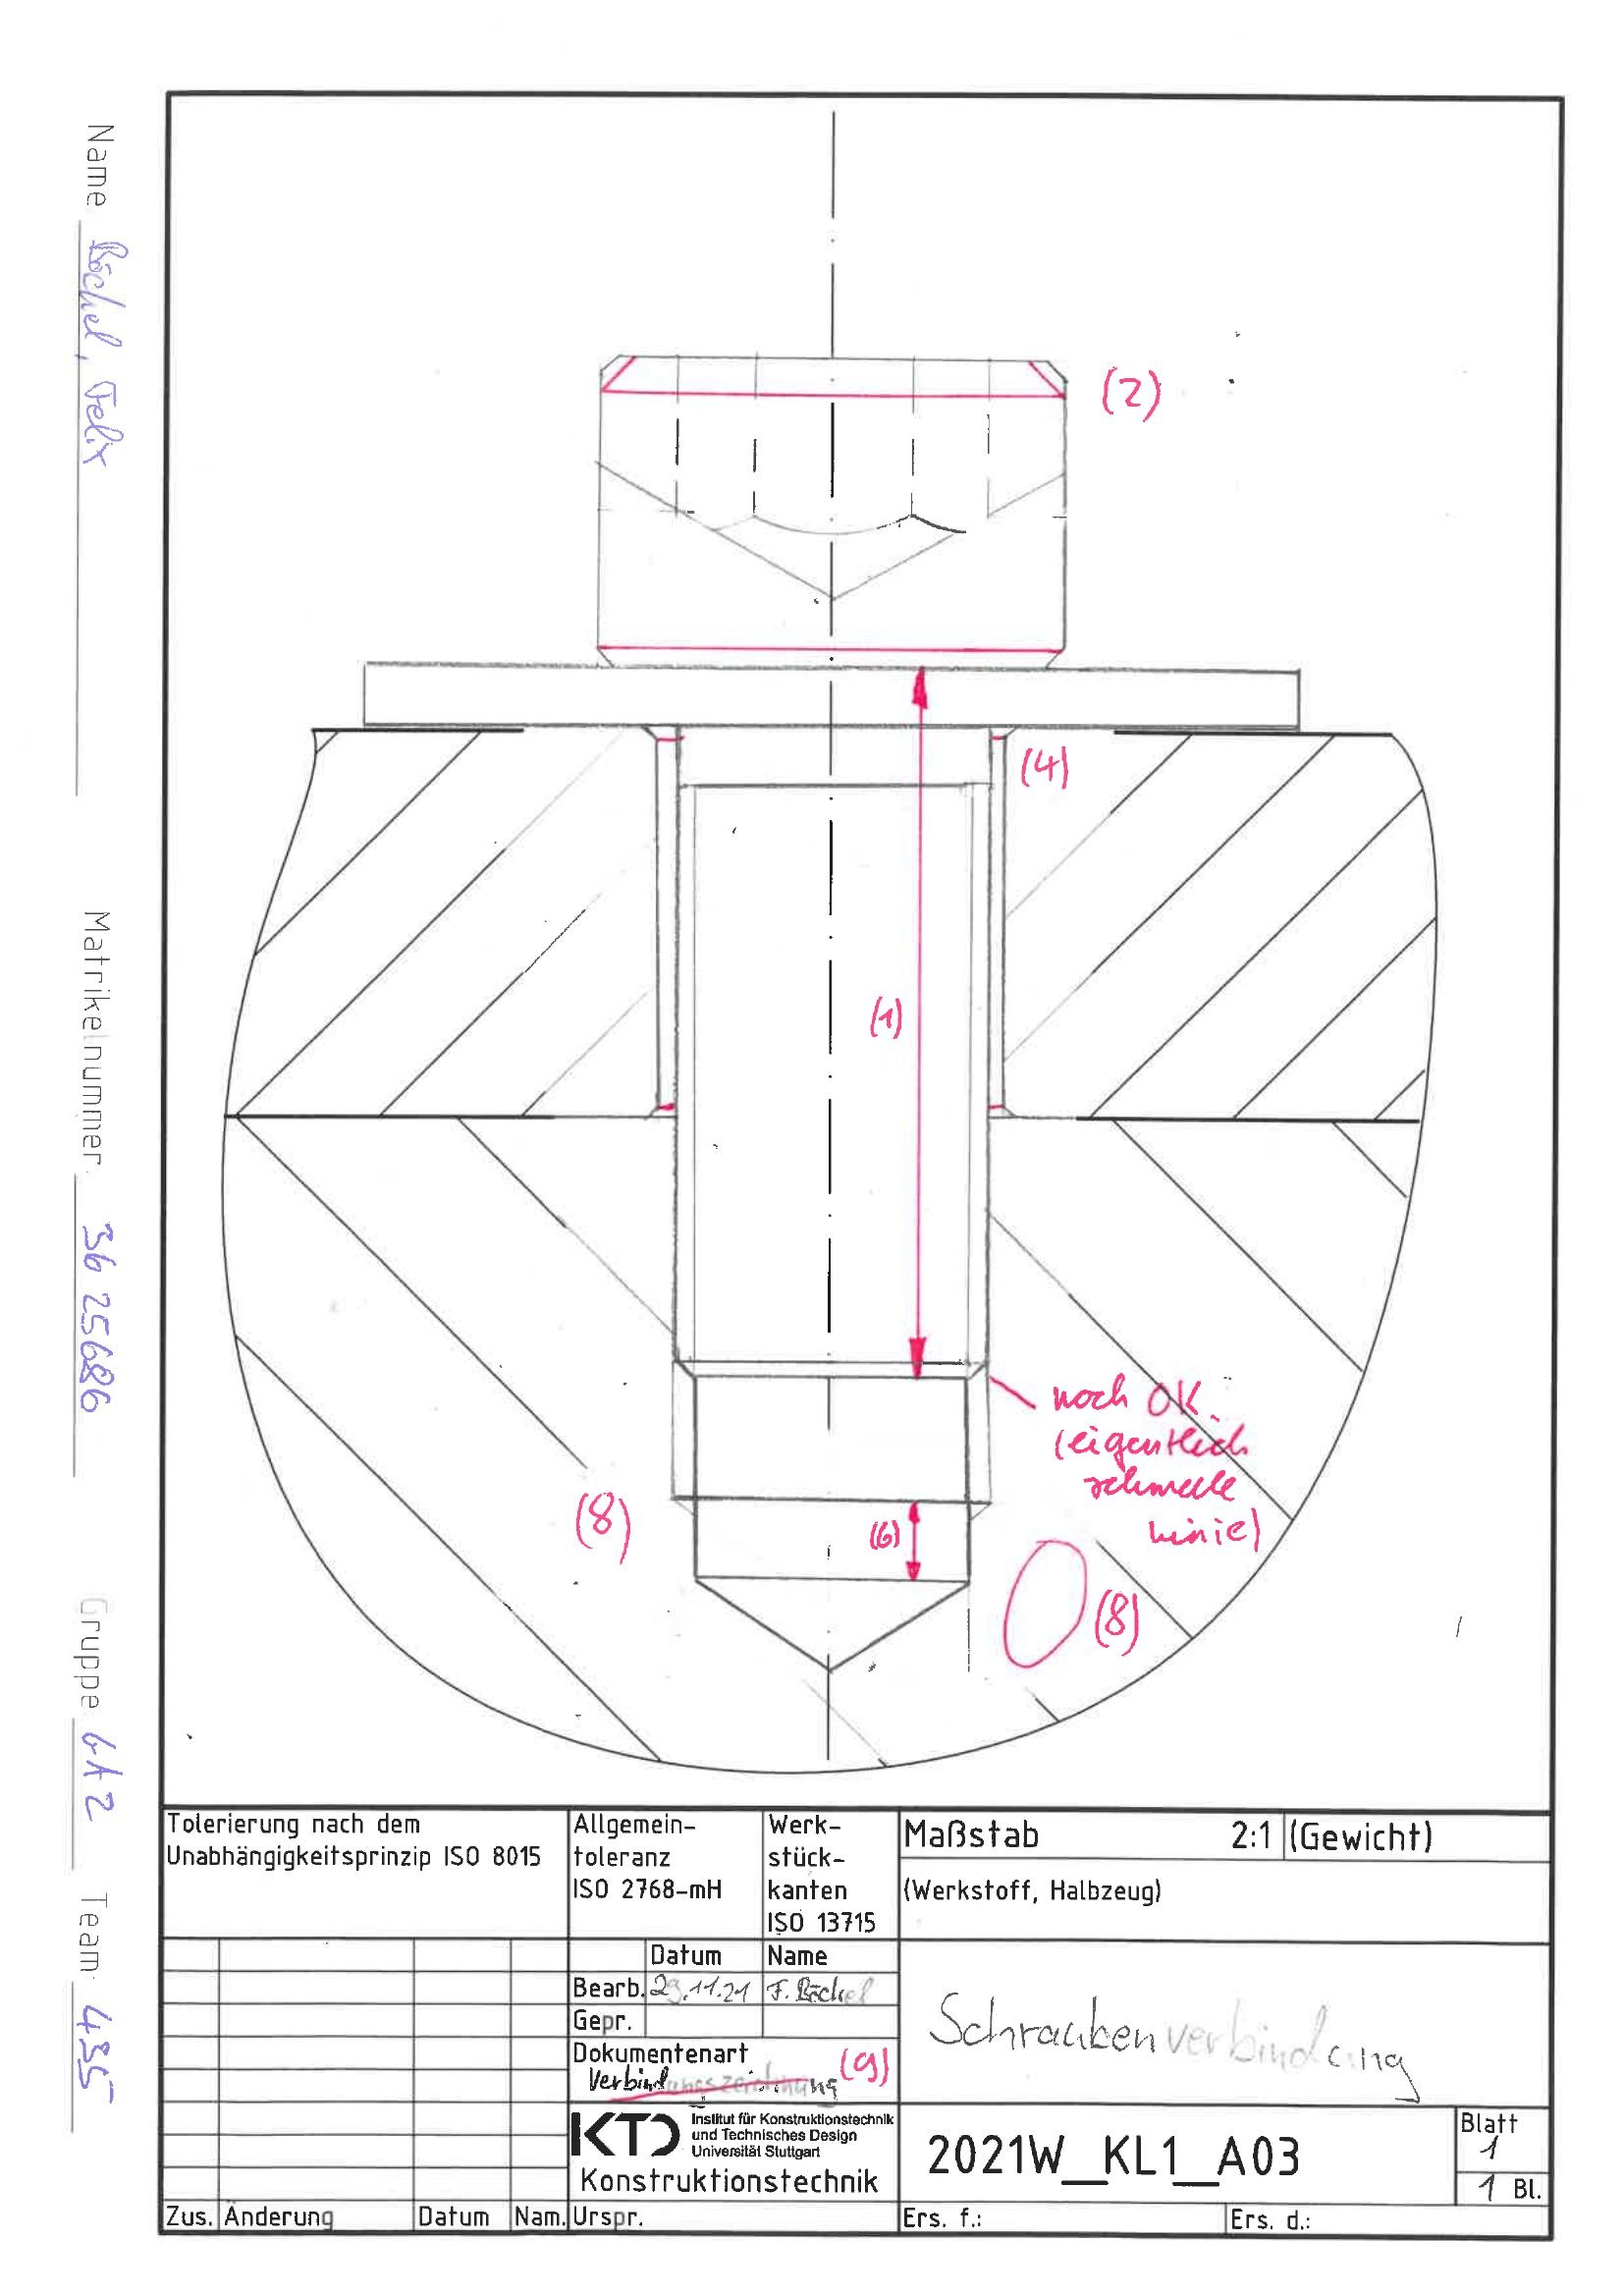 Name Böckel, Felix
Matrikelnummer 3625686
Gruppe GA2
Team 435
(2)
(4)
(1)
noch OK.
(eigentlich
schmale
Linie)
(8)
(6)
(8)
Tolerierung nach dem
Unabhängigkeitsprinzip ISO 8015
Allgemein-
toleranz
ISO 2768-mH
Werk-
stück-
kanten
ISO 13715
Maßstab 2:1 (Gewicht)
(Werkstoff, Halbzeug)
Datum Name
Bearb. 29.11.21 F. Böckel
Gepr.
Dokumentenart
Verbindungszeichnung (9)
Schraubenverbindung
KTD Institut für Konstruktionstechnik
und Technisches Design
Universität Stuttgart
Konstruktionstechnik
2021W_KL1_A03
Blatt
1
1 Bl.
Zus. Änderung Datum Nam. Urspr. Ers. f.: Ers. d.: